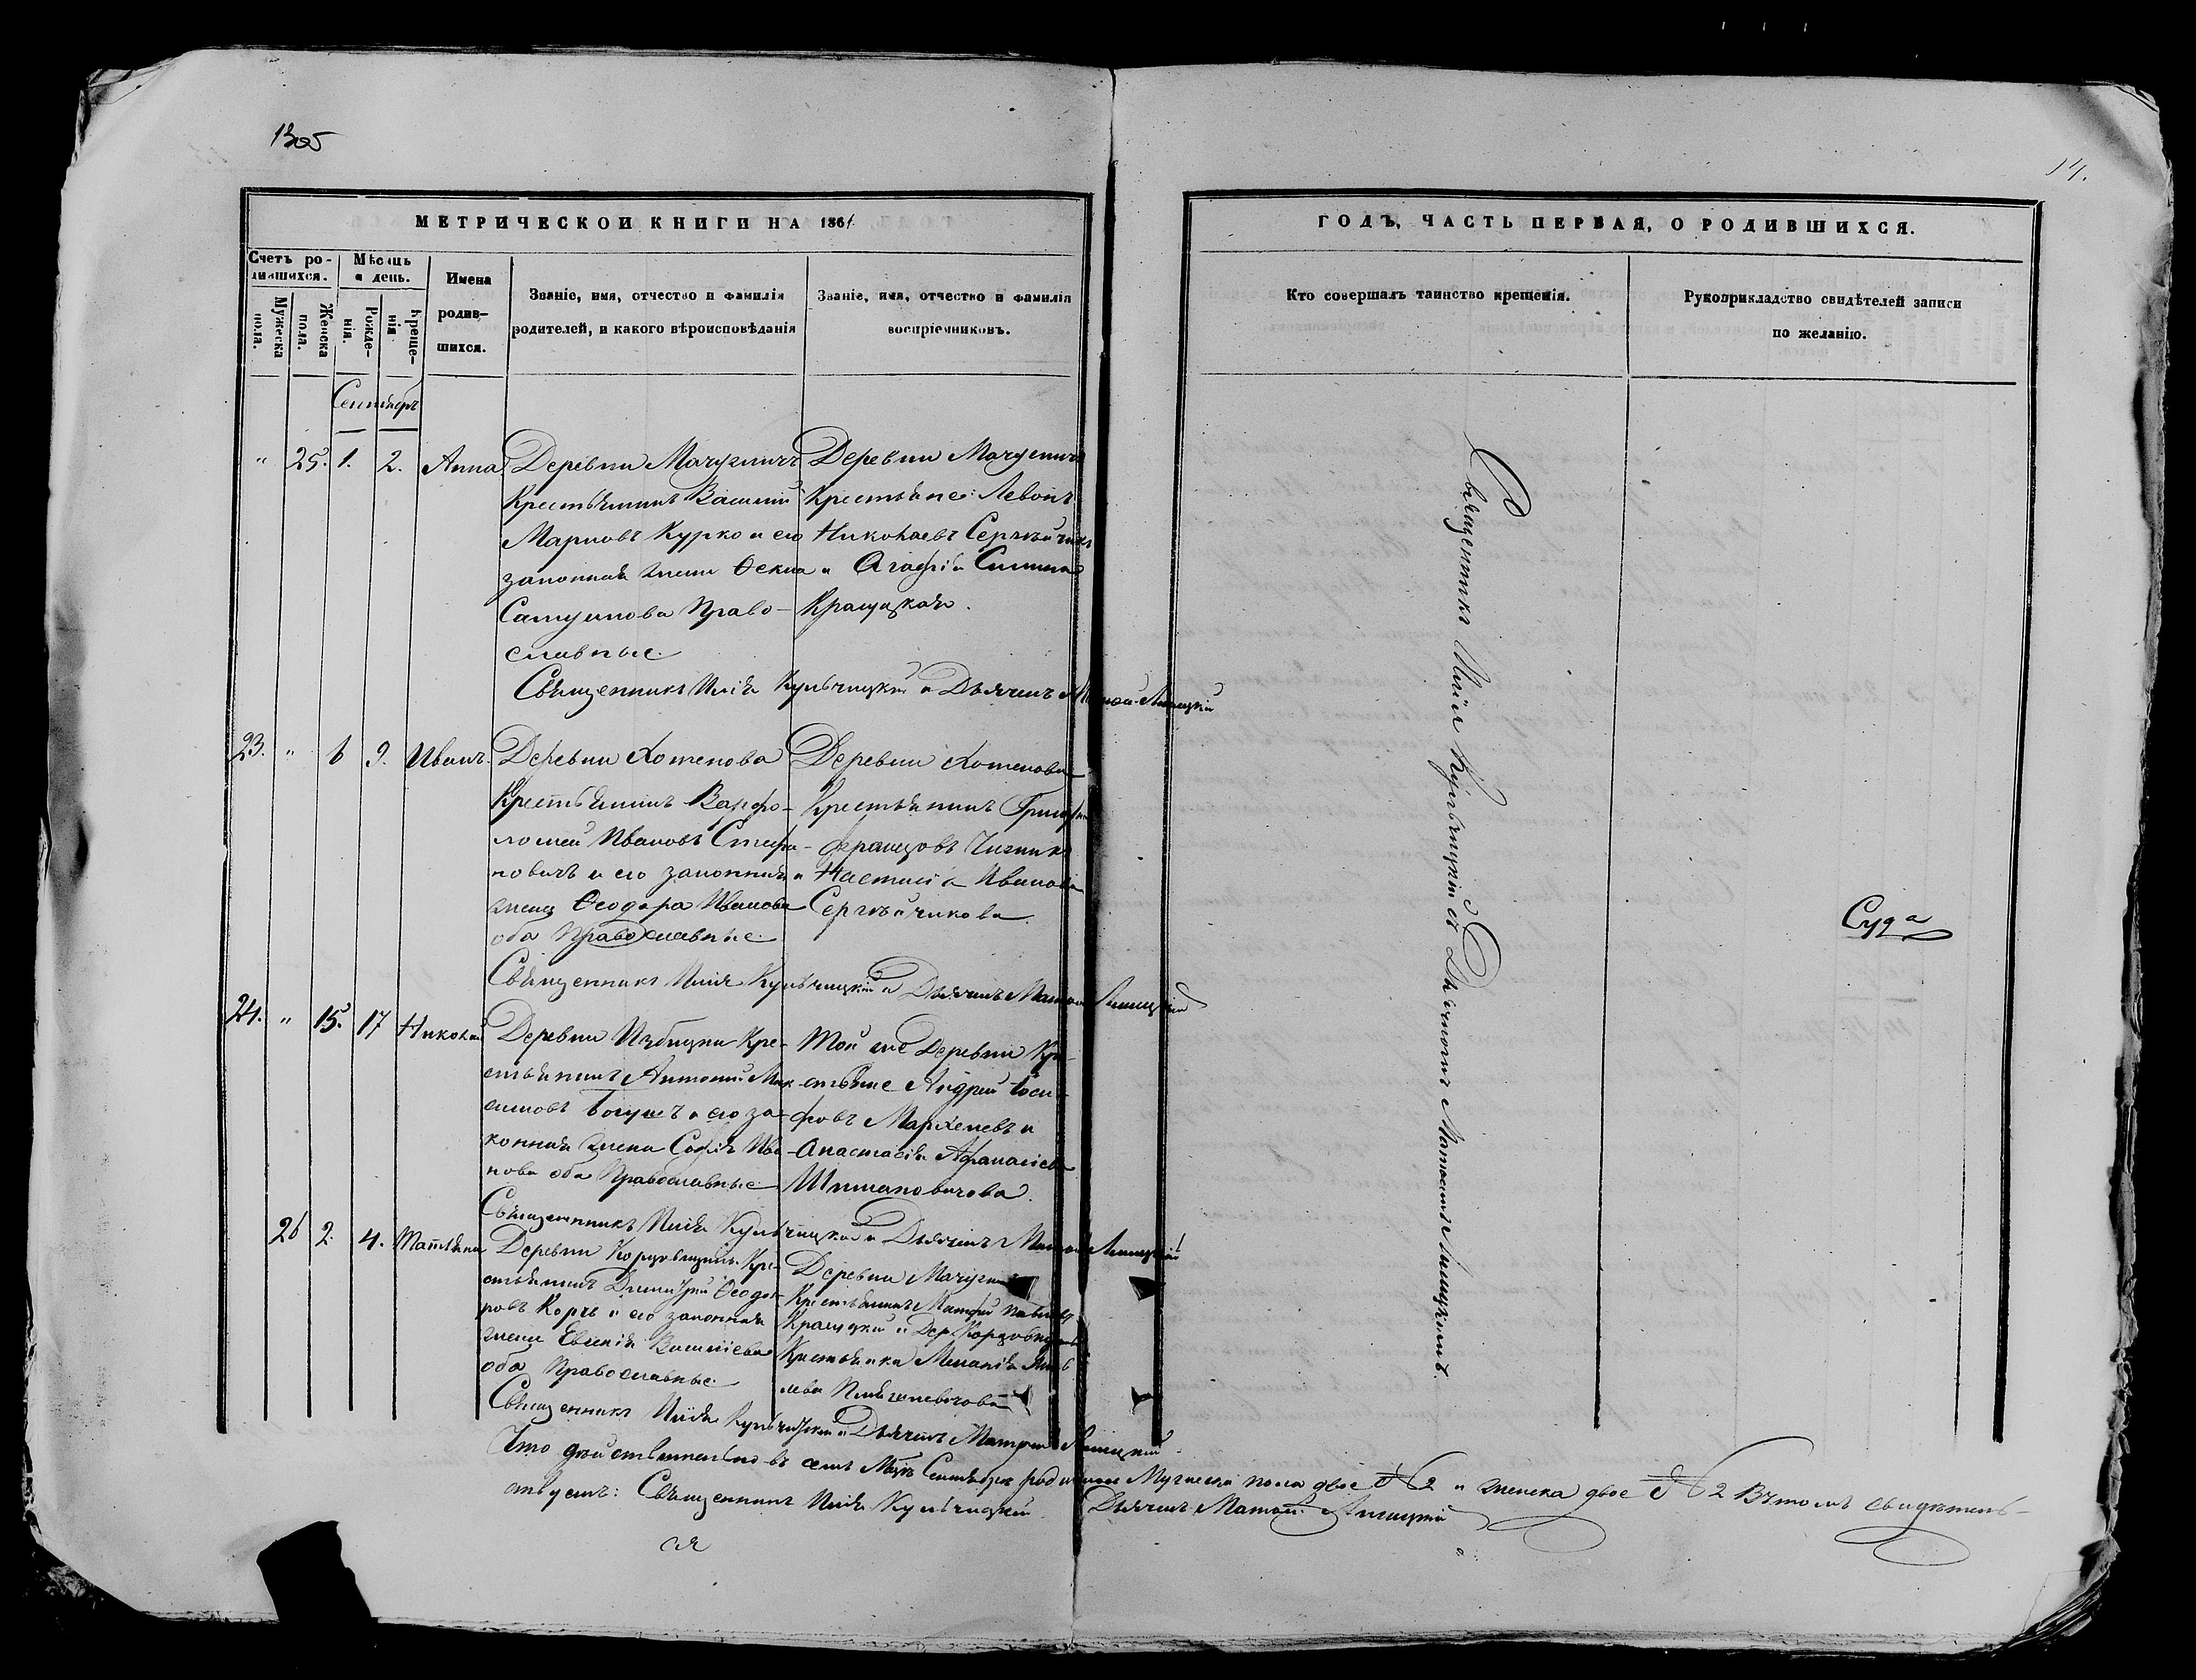 1305
14.
МЕТРИЧЕСКОЙ КНИГИ НА 1861
ГОДЪ, ЧАСТЬ ПЕРВАЯ, О РОДИВШИХСЯ.
Счетъ родившихся.
Мужеска пола.
Женска пола.
Мѣсяцъ и день.
Рожденія.
Крещенія
Имена родившихся.
Званіе, имя, отчество и фамилія
родителей, и какого вѣроисповѣданія
Званіе, имя, отчество и фамилія
воспріемниковъ.
Кто совершалъ таинство крещенія.
Рукоприкладство свидѣтелей записи
по желанію.
Сентябрь
" 25. 1. 2. Анна
Деревни
Крестьянинъ Василій
Марковъ Курко и его
законная жена Ѳекла
Право-
славные.
Деревни
Крестьяне: Левонъ
Николаевъ Сергѣйчикъ
и Агафія
Священникъ Илія Кульчицкій и Дьячекъ Матѳей Лисицкій
23. " 6 9. Иванъ.
Деревни Хотенова
Крестьянинъ Варфо-
ломей Ивановъ Стефа-
новичъ и его законная
жена Ѳеодора Иванова
оба Православные.
Деревни Хотенова
Крестьянинъ Григорій
и Настасія Иванова
Сергѣйчикова
Священникъ Илія Кульчицкій и Дьячекъ Матѳей Лисицкій
24. " 15. 17 Николай
Деревни Избицки Кре-
стьянинъ Антоній Мак-
симовъ и его за-
конная жена Софія Ива-
нова оба Православные
Той же Деревни Кре-
стьяне Андрей Іоси-
фовъ и
Анастасія Афанасіева
Шимановичова.
Священникъ Илія Кульчицкій и Дьячекъ Матѳей Лисицкій
26 2. 4. Татьяна
Деревни Кре-
стьянинъ Димитрій Ѳеодо-
ровъ Коржъ и его законная
жена Евгенія Василіева
оба Православные.
Деревни
Крестьянинъ Матѳей
и Дер.
Крестьянка Меланія
Священникъ Илія Кульчицкій и Дьячекъ Матѳей Лисицкій
Что дѣйствительно въ семъ Мцѣ Сентябрѣ родилось Мужеска пола двое №2 и женска двое №2 Въ томъ свидѣтель-
ствуемъ: Священникъ Илія Кульчицкій Дьячекъ Матѳей Лисицкій
Священникъ Илія Кульчицкій съ Дьячкомъ Матѳеемъ Лисицкимъ.
Суда